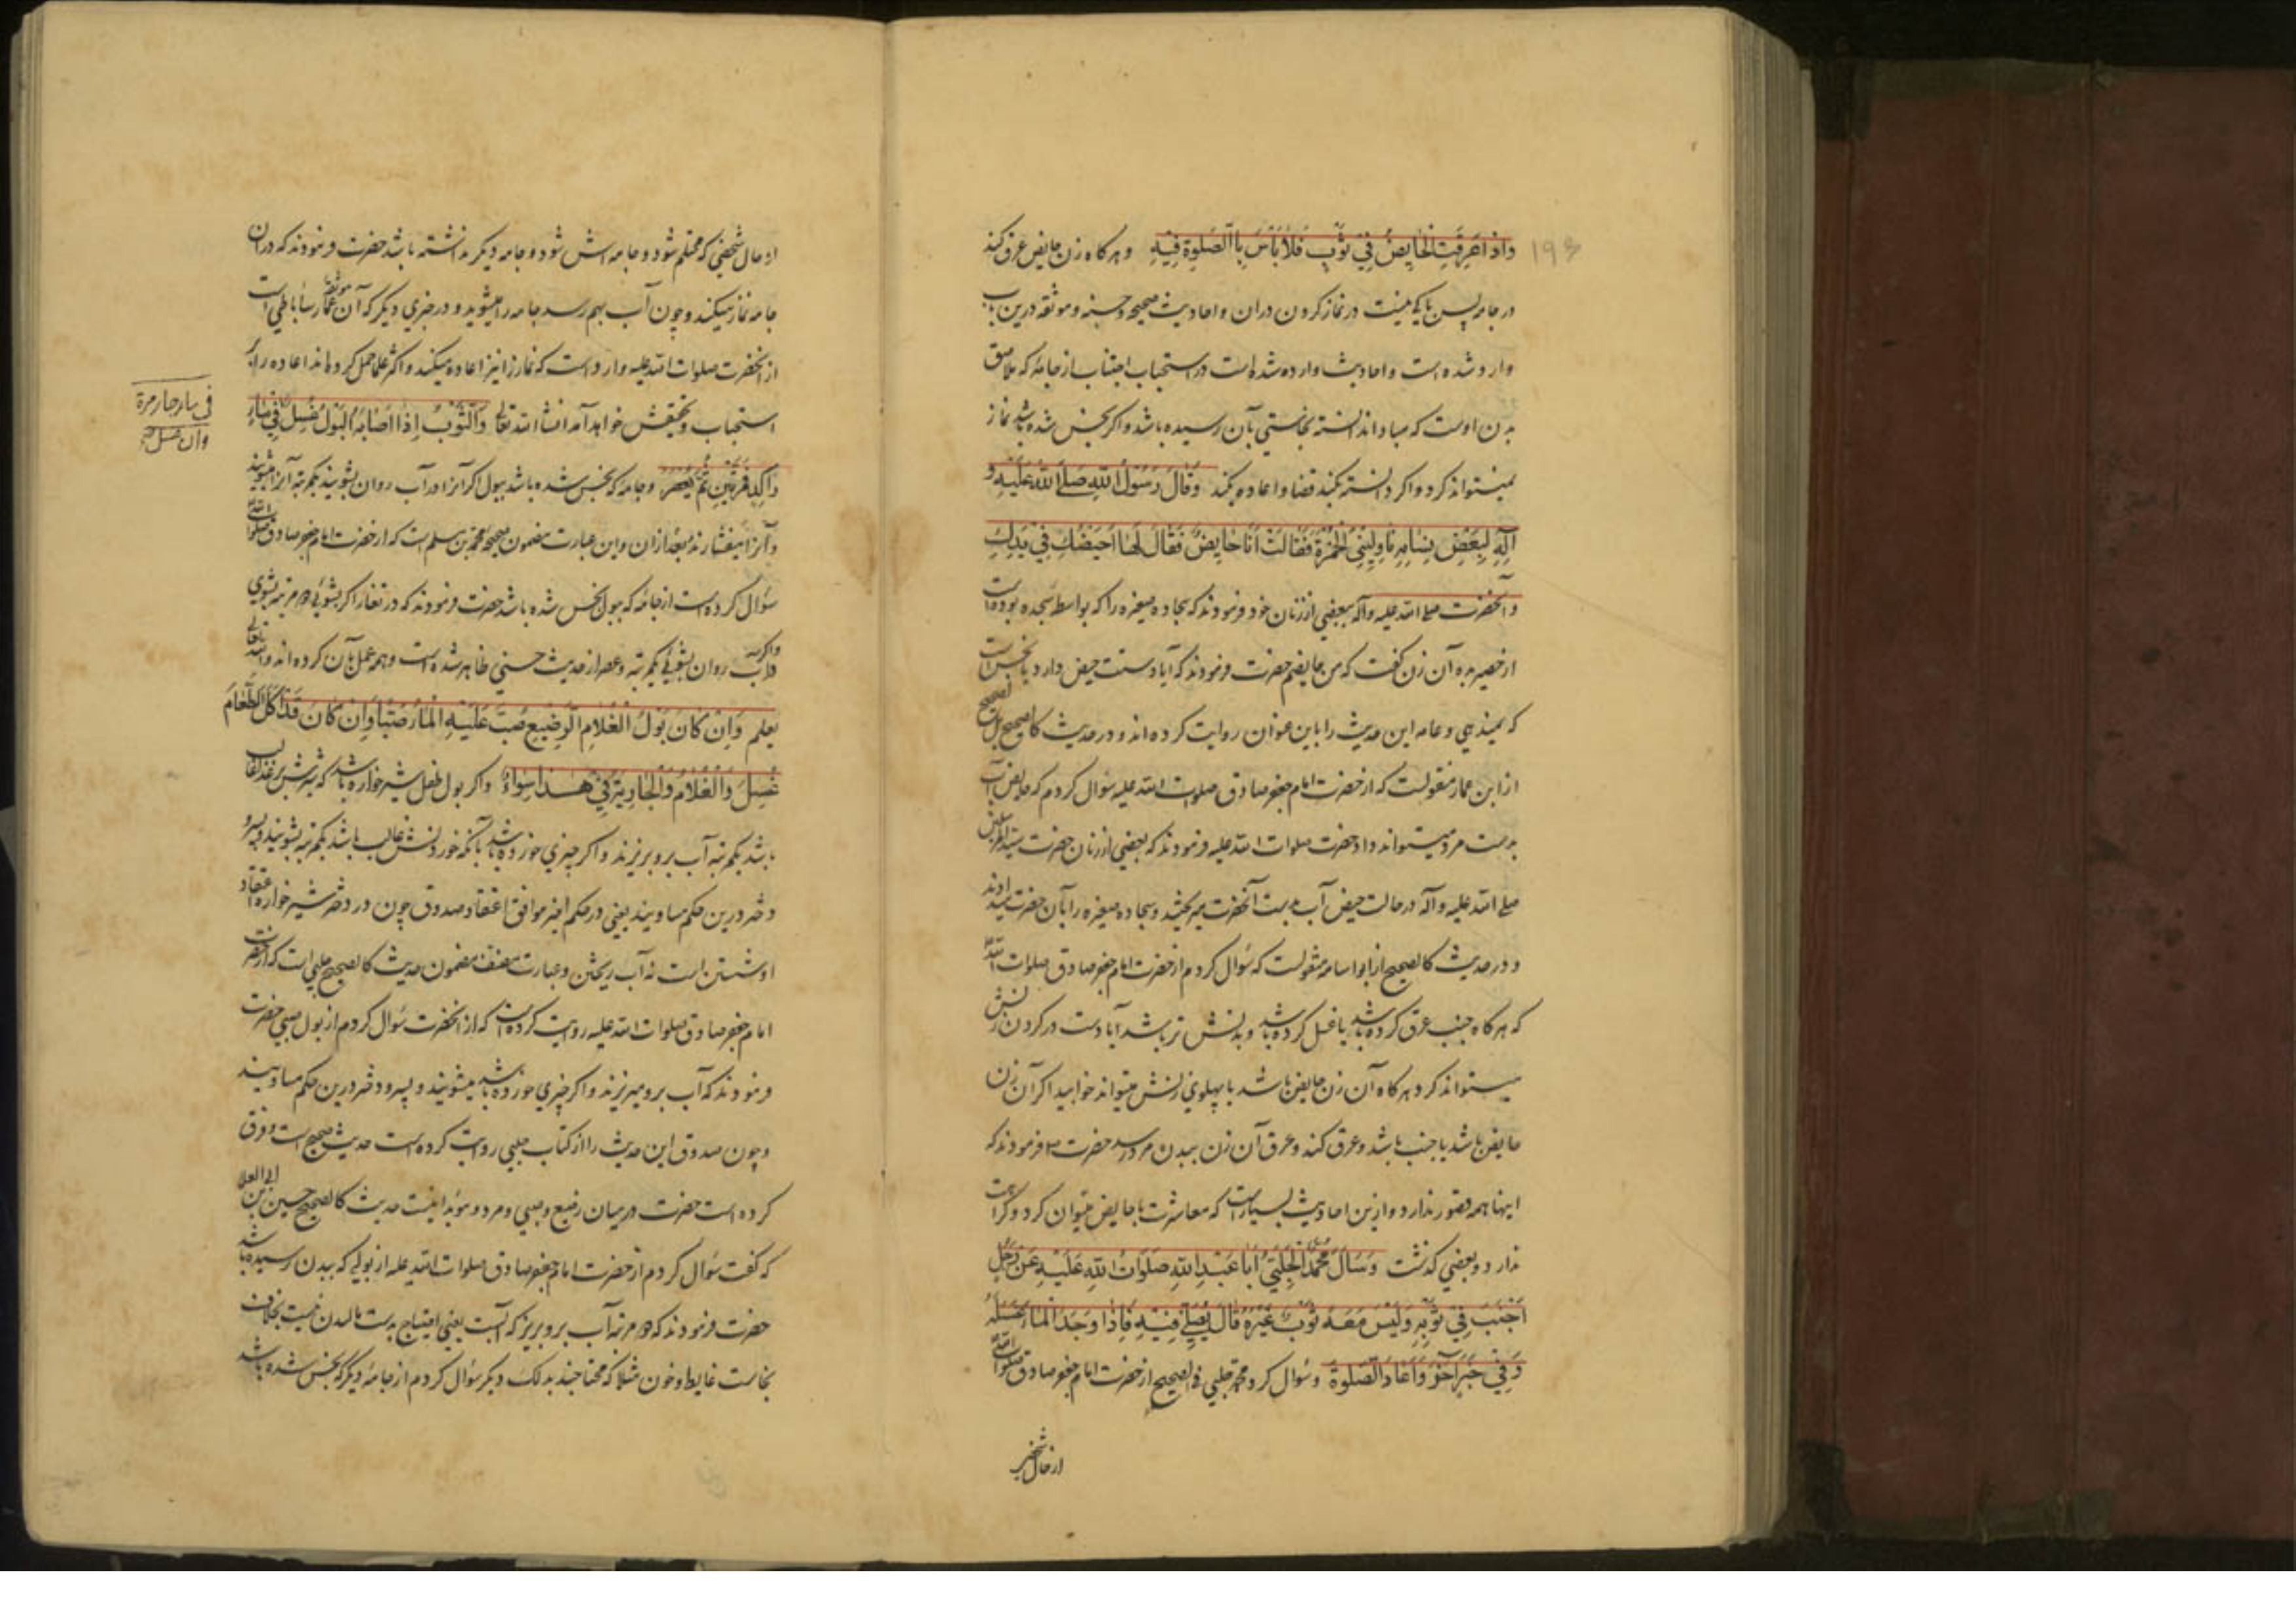 ۱۹۶
وَاِذَا عَرِقَتِ الْحَايِضُ فِي ثَوْبٍ فَلَا بَأْسَ بِالصَّلٰوةِ فِيْهِ وهر كاه زن حايض عرق كند
در جامه پس باكى نيست در نماز كردن دران واحاديث صحيحه وحسنه وموثقه درين باب
وارد شده است واحاديث وارد شده است در استحباب اجتناب از جامۀ كه ملاصق
بدن اوست كه مبادا ندانسته نجاستي بآن رسيده باشد واكر نجس شده باشد نماز
نميتواند كرد واكر دانسته نكند قضا واعاده نكند وَقَالَ رَسُوْلُ اللهِ صَلَّى اللهُ عَلَيْهِ وَ
آلِهِ لِبَعْضِ نِسَائِهِ نَاوِلِيْنِيْ الْخُمْرَةَ فَقَالَتْ اَنَا حَايِضٌ فَقَالَ لَهَا اَحَيْضُكِ فِيْ يَدِكِ
وآنحضرت صلى الله عليه وآله ببعضي از زنان خود فرمودند كه سجاده صغيره را كه بواسطه سجده بوده است
از حصير بده آن زن كفت كه من حايضم حضرت فرمودند كه آيا دستت حيض دارد يا نجس است
كه نميدهي وعامه اين حديث را باين عنوان روايت كرده اند ودر حديث كالصحيح بل الصحيح
از ابن عمار منقولست كه از حضرت امام جعفر صادق صلوات الله عليه سؤال كردم كه حايض آب
بدست مرد ميتواند داد حضرت صلوات الله عليه فرمودند كه بعضي از زنان حضرت سيد المرسلين
صلى الله عليه وآله در حالت حيض آب بدست آنحضرت ميريختند وسجاده صغيره را بآن حضرت ميدادند
ودر حديث كالصحيح از ابو اسامه منقولست كه سؤال كردم از حضرت امام جعفر صادق صلوات الله
كه هر كاه جنب عرق كرده باشد يا غسل كرده باشد وبدنش تر باشد آيا دست در كردن زنش
ميتواند كرد هر كاه آن زن حايض باشد يا پهلوي زنش ميتواند خوابيد اكر آن زن
حايض باشد يا جنب باشد وعرق كند وعرق آن زن ببدن مرد رسد حضرت فرمودند كه
اينها همه قصور ندارد وازين احاديث بسيار است كه معاشرت با حايض ميتوان كرد وكراهت
ندارد وبعضي كذشت وَسَاَلَ مُحَمَّدٌ الْحَلَبِيُّ اَبَا عَبْدِ اللهِ صَلَوَاتُ اللهِ عَلَيْهِ عَنْ رَجُلٍ
اَجْنَبَ فِيْ ثَوْبِهِ وَلَيْسَ مَعَهُ ثَوْبٌ غَيْرُهُ قَالَ يُصَلِّيْ فِيْهِ فَاِذَا وَجَدَ الْمَاءَ غَسَلَهُ
وَفِيْ خَبَرٍ آخَرَ وَاَعَادَ الصَّلٰوةَ وسؤال كرد محمد حلبي في الصحيح از حضرت امام جعفر صادق صلوات الله
از حال شخصى
از حال شخصي كه محتلم شود وجامه اش شود وجامه ديكر نداشته باشد حضرت فرمودند كه دران
جامه نماز ميكند وچون آب بهم رسد جامه را ميشويد ودر خبري ديكر كه آن موثقه عمار ساباطي است
از آنحضرت صلوات الله عليه وارد است كه نماز را نيز اعاده ميكند واكثر علما حمل كرده اند اعاده را بر
استحباب وتحقيقش خواهد آمد انشاء الله تعالى وَالثَّوْبُ اِذَا اَصَابَهُ الْبَوْلُ غُسِلَ فِيْ مَاءٍ
رَاكِدٍ مَرَّتَيْنِ ثُمَّ يُعْصَرُ وجامه كه نجس شده باشد ببول اكر آنرا در آب روان بشويند يكمرتبه آنرا ميشويند
وآنرا ميفشارند بعد ازان واين عبارت مضمون صحيحه محمد بن مسلم است كه از حضرت امام جعفر صادق صلوات الله
سؤال كرده است از جامۀ كه ببول نجس شده باشد حضرت فرمودند كه در تغار اكر بشوئي دو مرتبه بشوي
واكر به آب روان بشوئي يكمرتبه وعصر از حديث حسني ظاهر شده است وهمه عمل بآن كرده اند والله تعالى
يعلم وَاِنْ كَانَ بَوْلُ الْغُلَامِ الرَّضِيْعِ صُبَّ عَلَيْهِ الْمَاءُ صَبًّا وَاِنْ كَانَ قَدْ اَكَلَ الطَّعَامَ
غُسِلَ وَالْغُلَامُ وَالْجَارِيَةُ فِيْ هٰذَا سَوَاءٌ واكر بول طفل شير خواره باشد كه شيرش بر غذا غالب
باشد يكمرتبه آب برو بريزند واكر چيزي خورده باشد بآنكه خوردنش غالب باشد يكمرتبه بشويند وپسر و
دختر درين حكم مساويند يعني در حكم اخير موافق اعتقاد صدوق چون در دختر شير خواره اعتقاد
او شستن است نه آب ريختن وعبارت مصنف مضمون حديث كالصحيح حلبي است كه از حضرت
امام جعفر صادق صلوات الله عليه روايت كرده است كه از آنحضرت سؤال كردم از بول صبي حضرت
فرمودند كه آب برو ميريزند واكر چيزي خورده باشد ميشويند وپسر ودختر درين حكم مساويند
وچون صدوق اين حديث را از كتاب حلبي روايت كرده است حديث صحيح است وفرق
كرده است حضرت درميان رضيع وصبي ومرد ومؤيد اينست حديث كالصحيح حسين بن ابي العلا
كه كفت سؤال كردم از حضرت امام جعفر صادق صلوات الله عليه از بولي كه ببدن رسيده باشد
حضرت فرمودند كه دو مرتبه آب برو بريز كه آبست يعني احتياج بدست ماليدن نيست بخلاف
نجاست غايط وخون مثلا كه محتاجند بدلك ديكر سؤال كردم از جامۀ ديكر كه نجس شده باشد
في ماء جار مرة
وان غسل